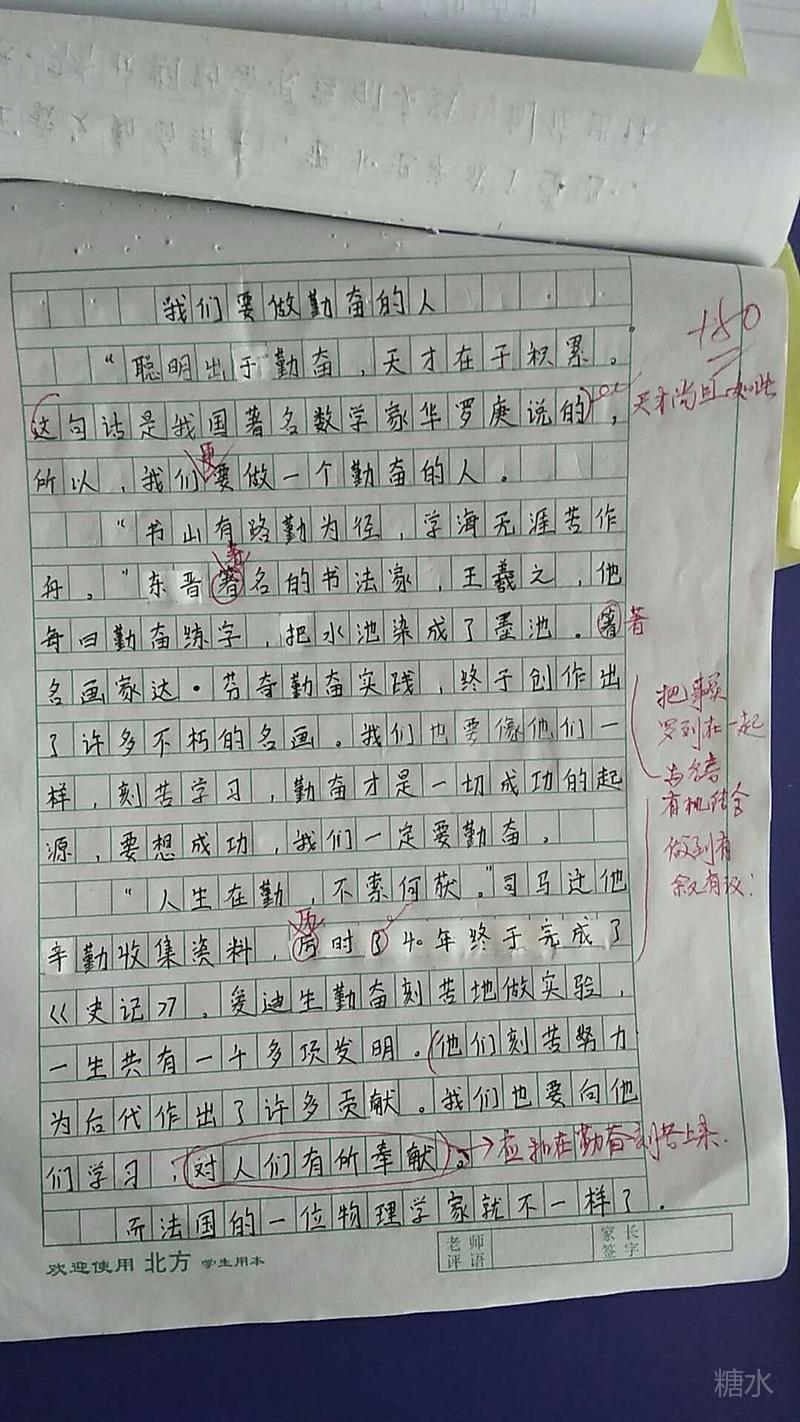 我们要做勤奋的人
+80
“聪明出于勤奋，天才在于积累。
这句话是我国著名数学家华罗庚说的，
天才尚且如此
所以，我们要做一个勤奋的人。
更
“书山有路勤为径，学海无涯苦作
舟。”东晋著名的书法家，王羲之，他
著
每日勤奋练字，把水池染成了墨池。著
著
名画家达·芬奇勤奋实践，终于创作出
了许多不朽的名画。我们也要像他们一
样，刻苦学习，勤奋才是一切成功的起
源，要想成功，我们一定要勤奋。
把事实
罗列在一起
有机结合
做到有
叙有议！
“人生在勤，不索何获。”司马迁他
辛勤收集资料，历时了40年终于完成了
历
《史记》，爱迪生勤奋刻苦地做实验，
一生共有一千多项发明。他们刻苦努力
为后代作出了许多贡献。我们也要向他
们学习，对人们有所奉献。
应扣在勤奋刻苦上来.
而法国的一位物理学家就不一样了.
欢迎使用 北方 学生用本
老师评语
家长签字
糖水